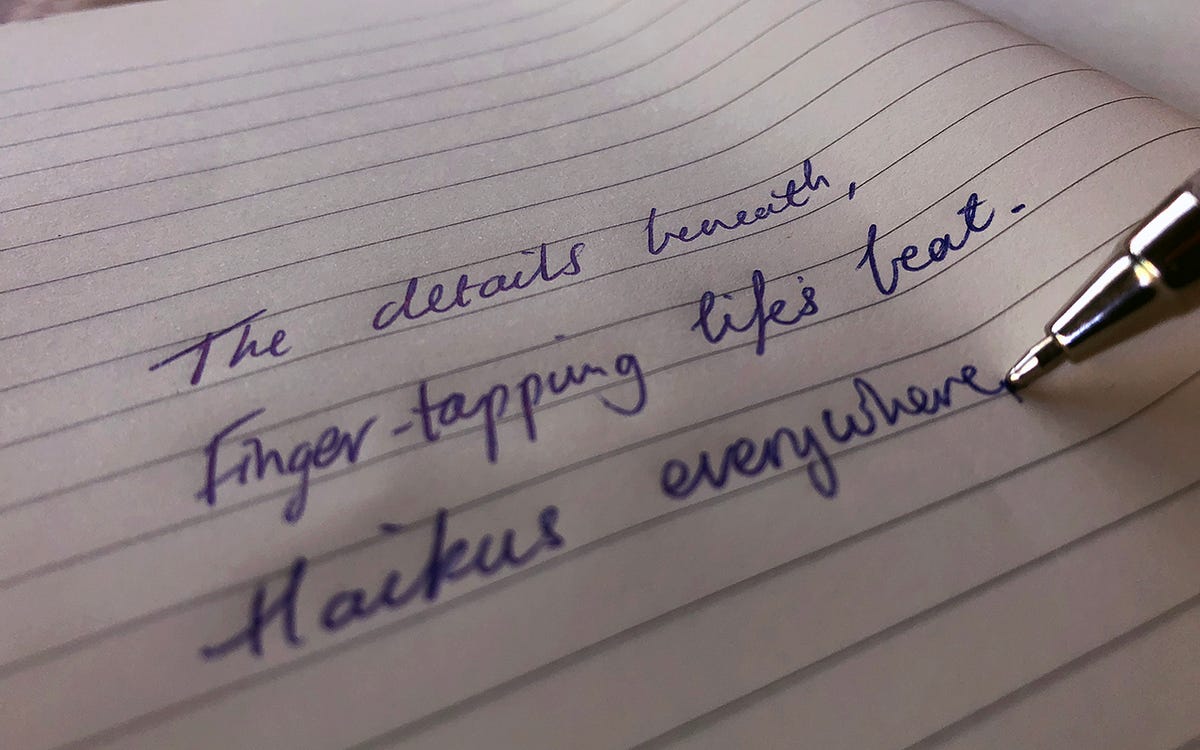 The details beneath,
Finger-tapping life's beat.
Haikus everywhere.